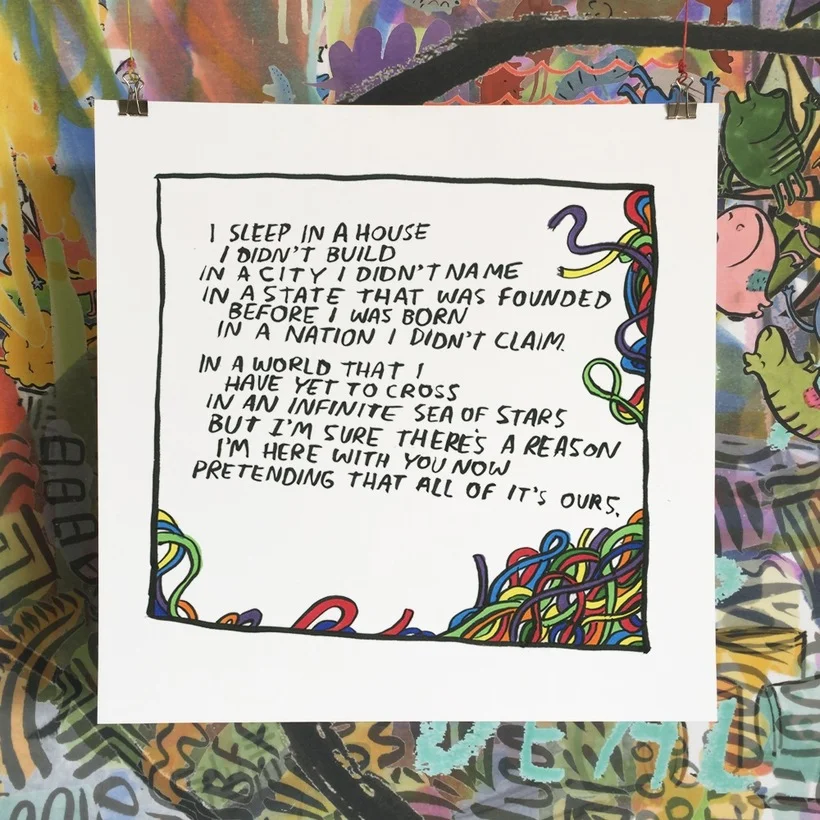 I SLEEP IN A HOUSE
I DIDN'T BUILD
IN A CITY I DIDN'T NAME
IN A STATE THAT WAS FOUNDED
BEFORE I WAS BORN
IN A NATION I DIDN'T CLAIM.
IN A WORLD THAT I
HAVE YET TO CROSS
IN AN INFINITE SEA OF STARS
BUT I'M SURE THERE'S A REASON
I'M HERE WITH YOU NOW
PRETENDING THAT ALL OF IT'S OURS.